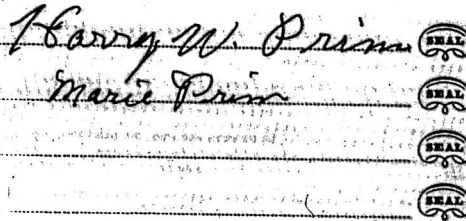 Harry W. Prim SEAL
Marie Prim SEAL
SEAL
SEAL